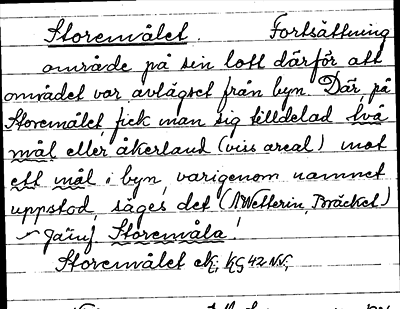 Storemålet. Fortsättning
område på sin lott därför att
området var avlägset från byn. Där på
Storemålet fick man sig tilldelad två
mål eller åkerland (viss areal) mot
ett mål i byn, varigenom namnet
uppstod, säges det (A Wetterin, Bräcket)
~ Jämf Storemåla!
Storemålet ek; kg 42 NV,